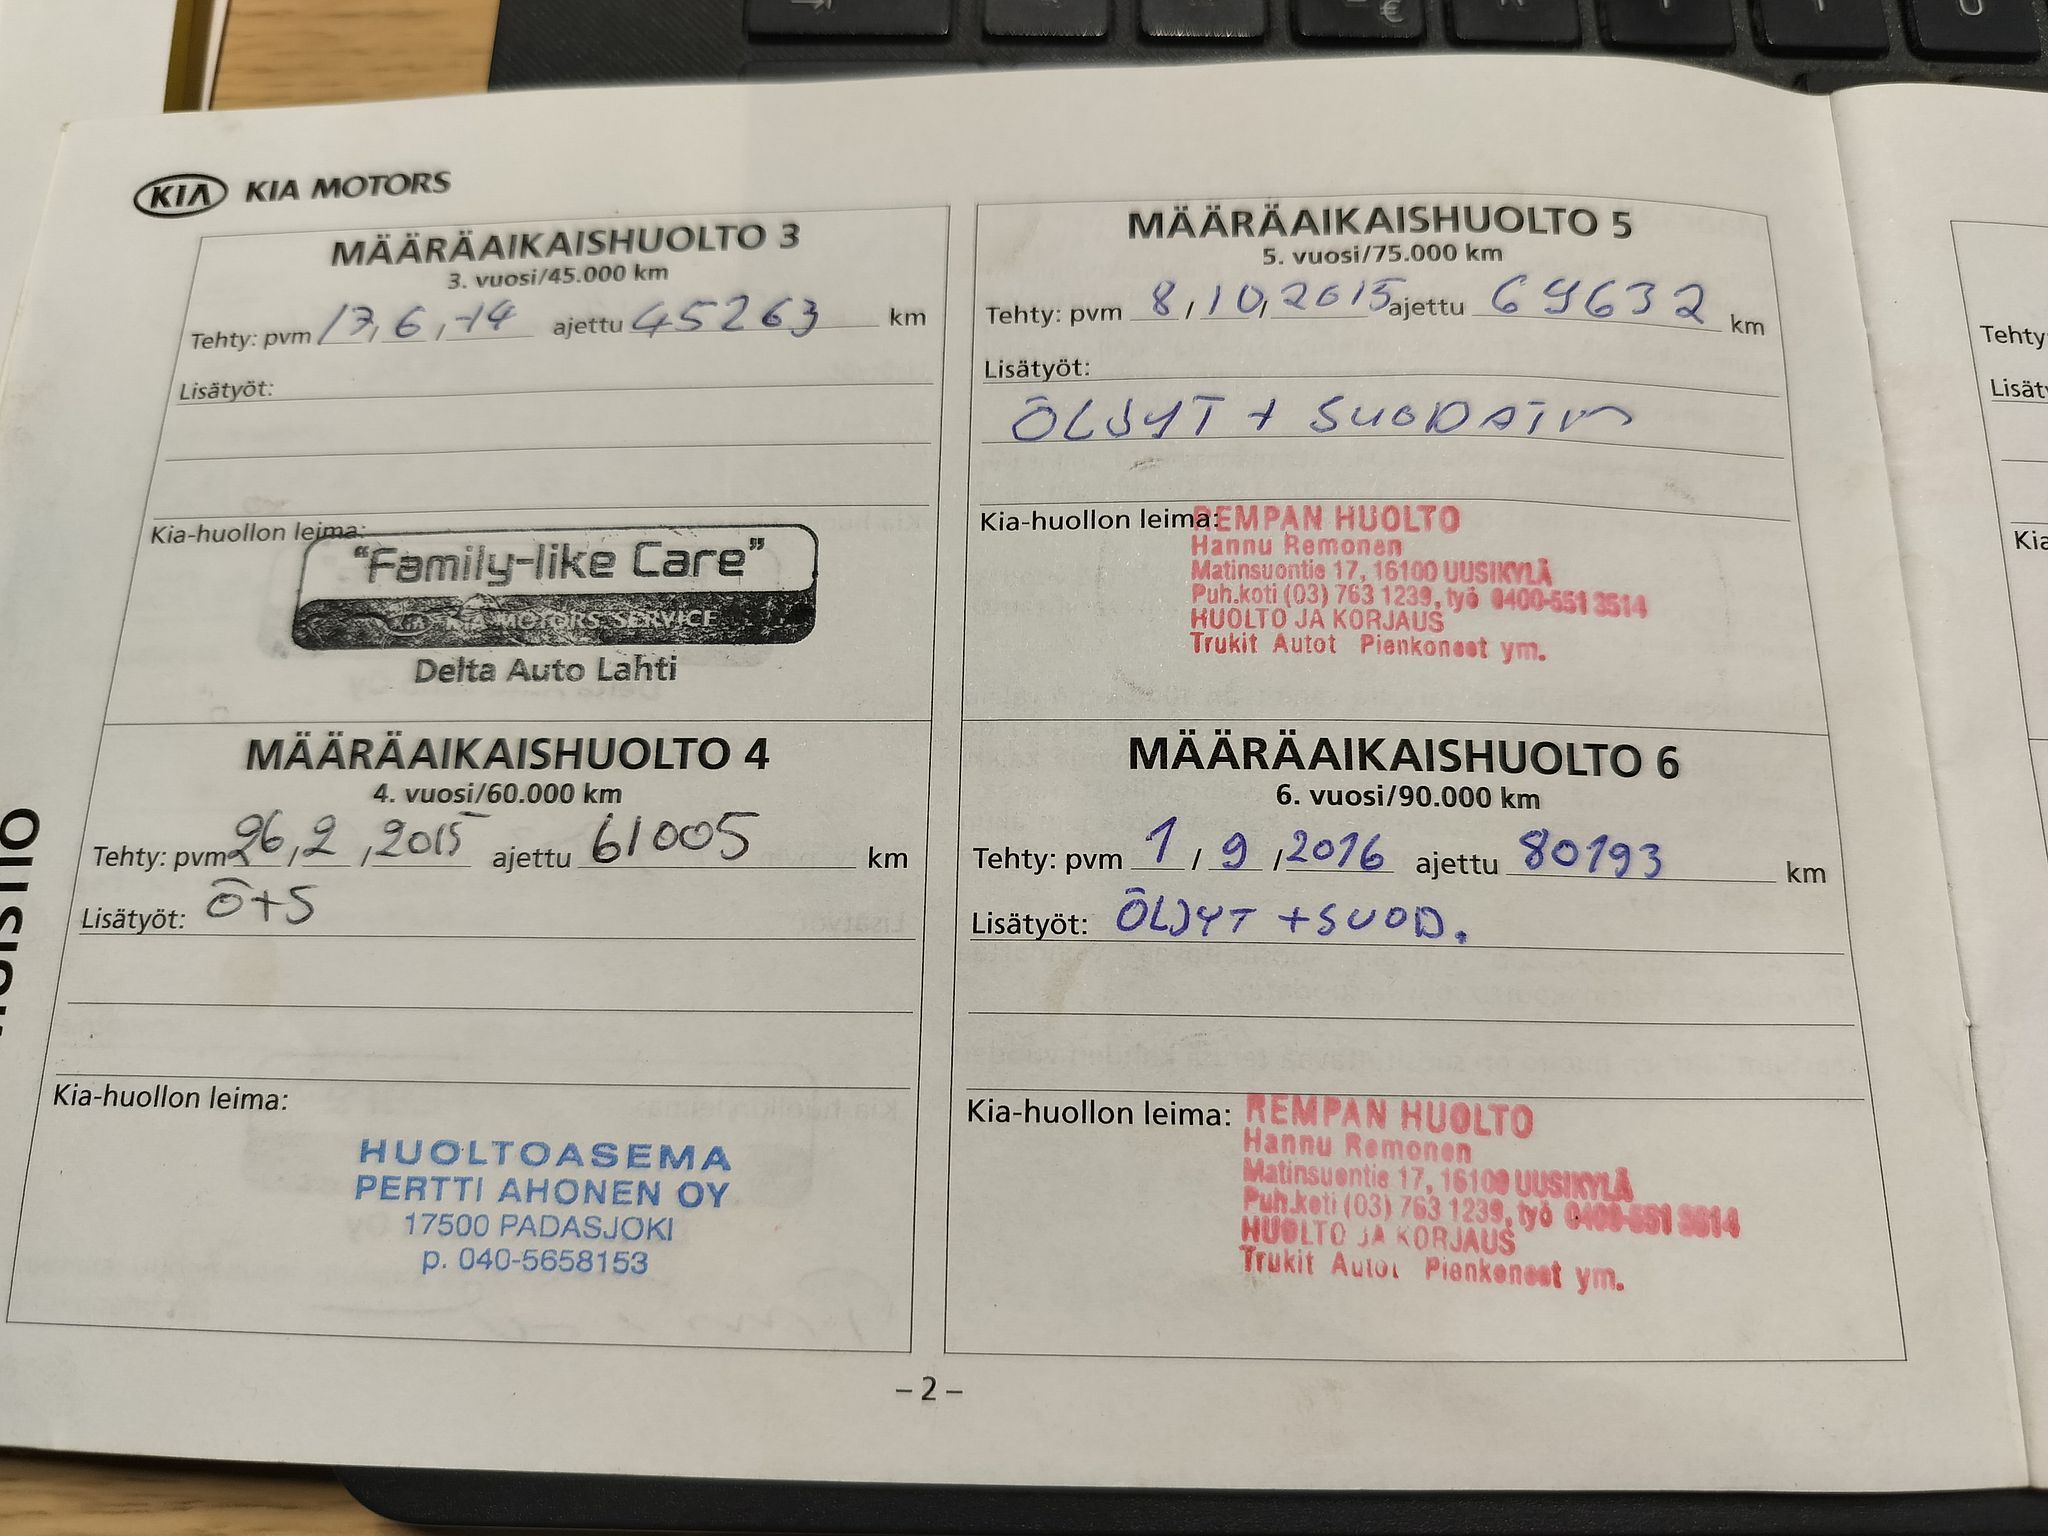 KIA KIA MOTORS
MÄÄRÄAIKAISHUOLTO 3
3. vuosi/45.000 km
Tehty: pvm 17, 6, -14 ajettu 45263 km
Lisätyöt:
Kia-huollon leima:
"Family-like Care"
KIA KIA MOTORS SERVICE
Delta Auto Lahti
MÄÄRÄAIKAISHUOLTO 4
4. vuosi/60.000 km
Tehty: pvm 26, / 2 , 2015 ajettu 61005 km
Lisätyöt: Ö+S
Kia-huollon leima:
HUOLTOASEMA
PERTTI AHONEN OY
17500 PADASJOKI
p. 040-5658153
MÄÄRÄAIKAISHUOLTO 5
5. vuosi/75.000 km
Tehty: pvm 8 / 10, 2015 ajettu 69632 km
Lisätyöt:
ÖLJYT + SUODATIN
Kia-huollon leima:
REMPAN HUOLTO
Hannu Remonen
Matinsuontie 17, 16100 UUSIKYLÄ
Puh.koti (03) 763 1239, työ 0400-551 3514
HUOLTO JA KORJAUS
Trukit Autot Pienkoneet ym.
MÄÄRÄAIKAISHUOLTO 6
6. vuosi/90.000 km
Tehty: pvm 1 / 9 / 2016 ajettu 80193 km
Lisätyöt: ÖLJYT + SUOD.
Kia-huollon leima:
REMPAN HUOLTO
Hannu Remonen
Matinsuontie 17, 16100 UUSIKYLÄ
Puh.koti (03) 763 1239, työ 0400-551 3514
HUOLTO JA KORJAUS
Trukit Autot Pienkoneet ym.
– 2 –
Tehty